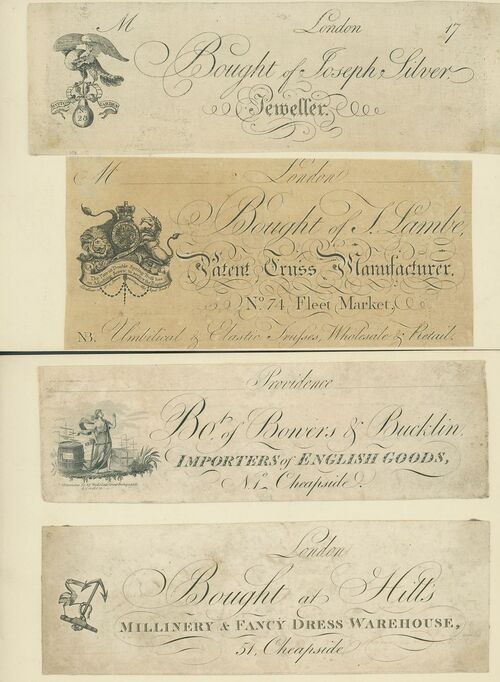 M London 17
Bought of Joseph Silver
Jeweller.
HATTON GARDEN
No
28
M London
Bought of J. Lambe,
Patent Truss Manufacturer,
No. 74, Fleet Market,
NB. Umbilical & Elastic Trusses, Wholesale & Retail.
Providence
Bot. of Bowers & Bucklin.
IMPORTERS of ENGLISH GOODS,
No. 1, Cheapside.
London
Bought at Hills
MILLINERY & FANCY DRESS WAREHOUSE,
51, Cheapside